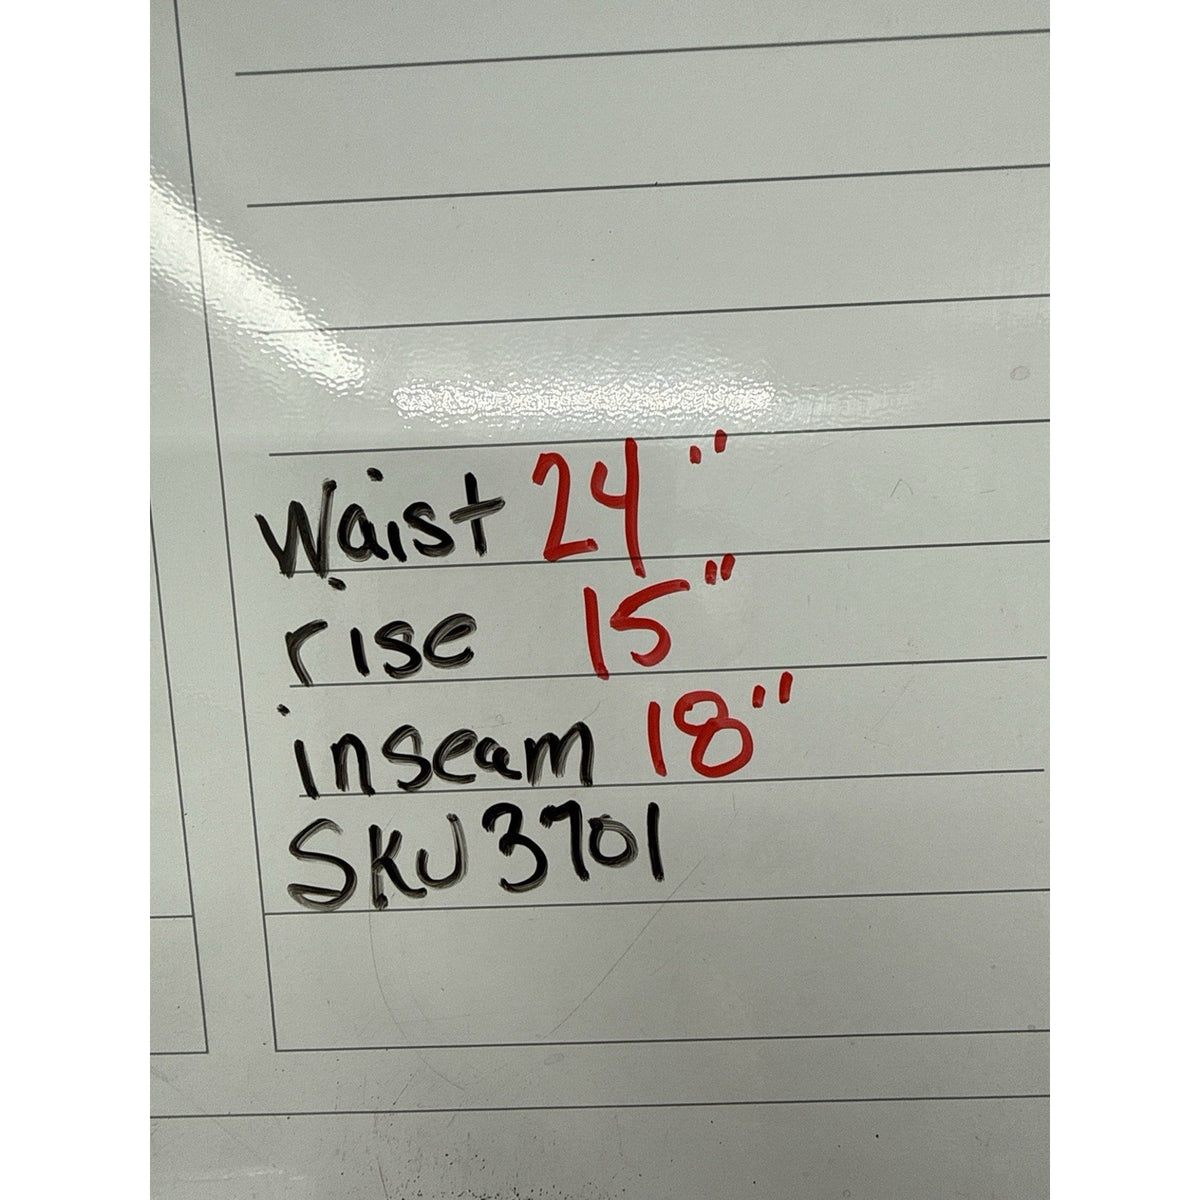 Waist 24"
rise 15"
inseam 18"
SKU 3701